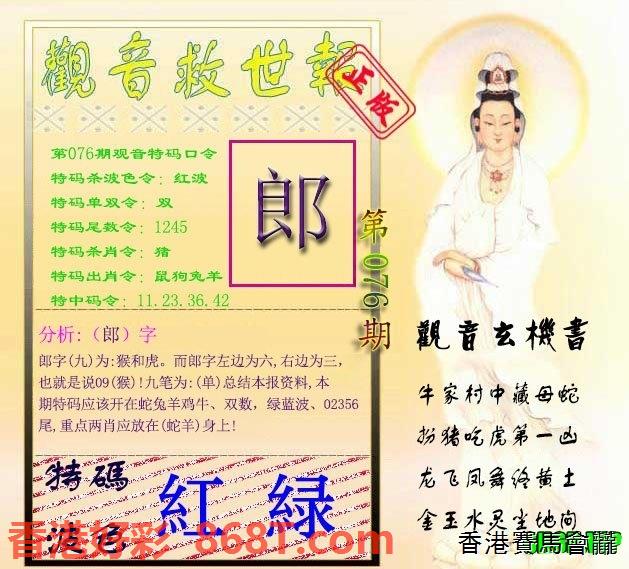 觀音救世報
正版
第076期观音特码口令
特码杀波色令：红波
特码单双令：双
特码尾数令：1245
特码杀肖令：猪
特码出肖令：鼠狗兔羊
特中码令：11.23.36.42
郎
第076期
分析:（郎）字
郎字(九)为:猴和虎。而郎字左边为六,右边为三，
也就是说09(猴)!九笔为:(单)总结本报资料,本
期特码应该开在蛇兔羊鸡牛、双数，绿蓝波、02356
尾,重点两肖应放在(蛇羊)身上!
特碼
波色
紅 绿
觀音玄機書
牛家村中藏母蛇
扮猪吃虎第一凶
龙飞凤舞终黄土
金玉水灵坐地间
香港好彩 868T.com
香港賽馬會